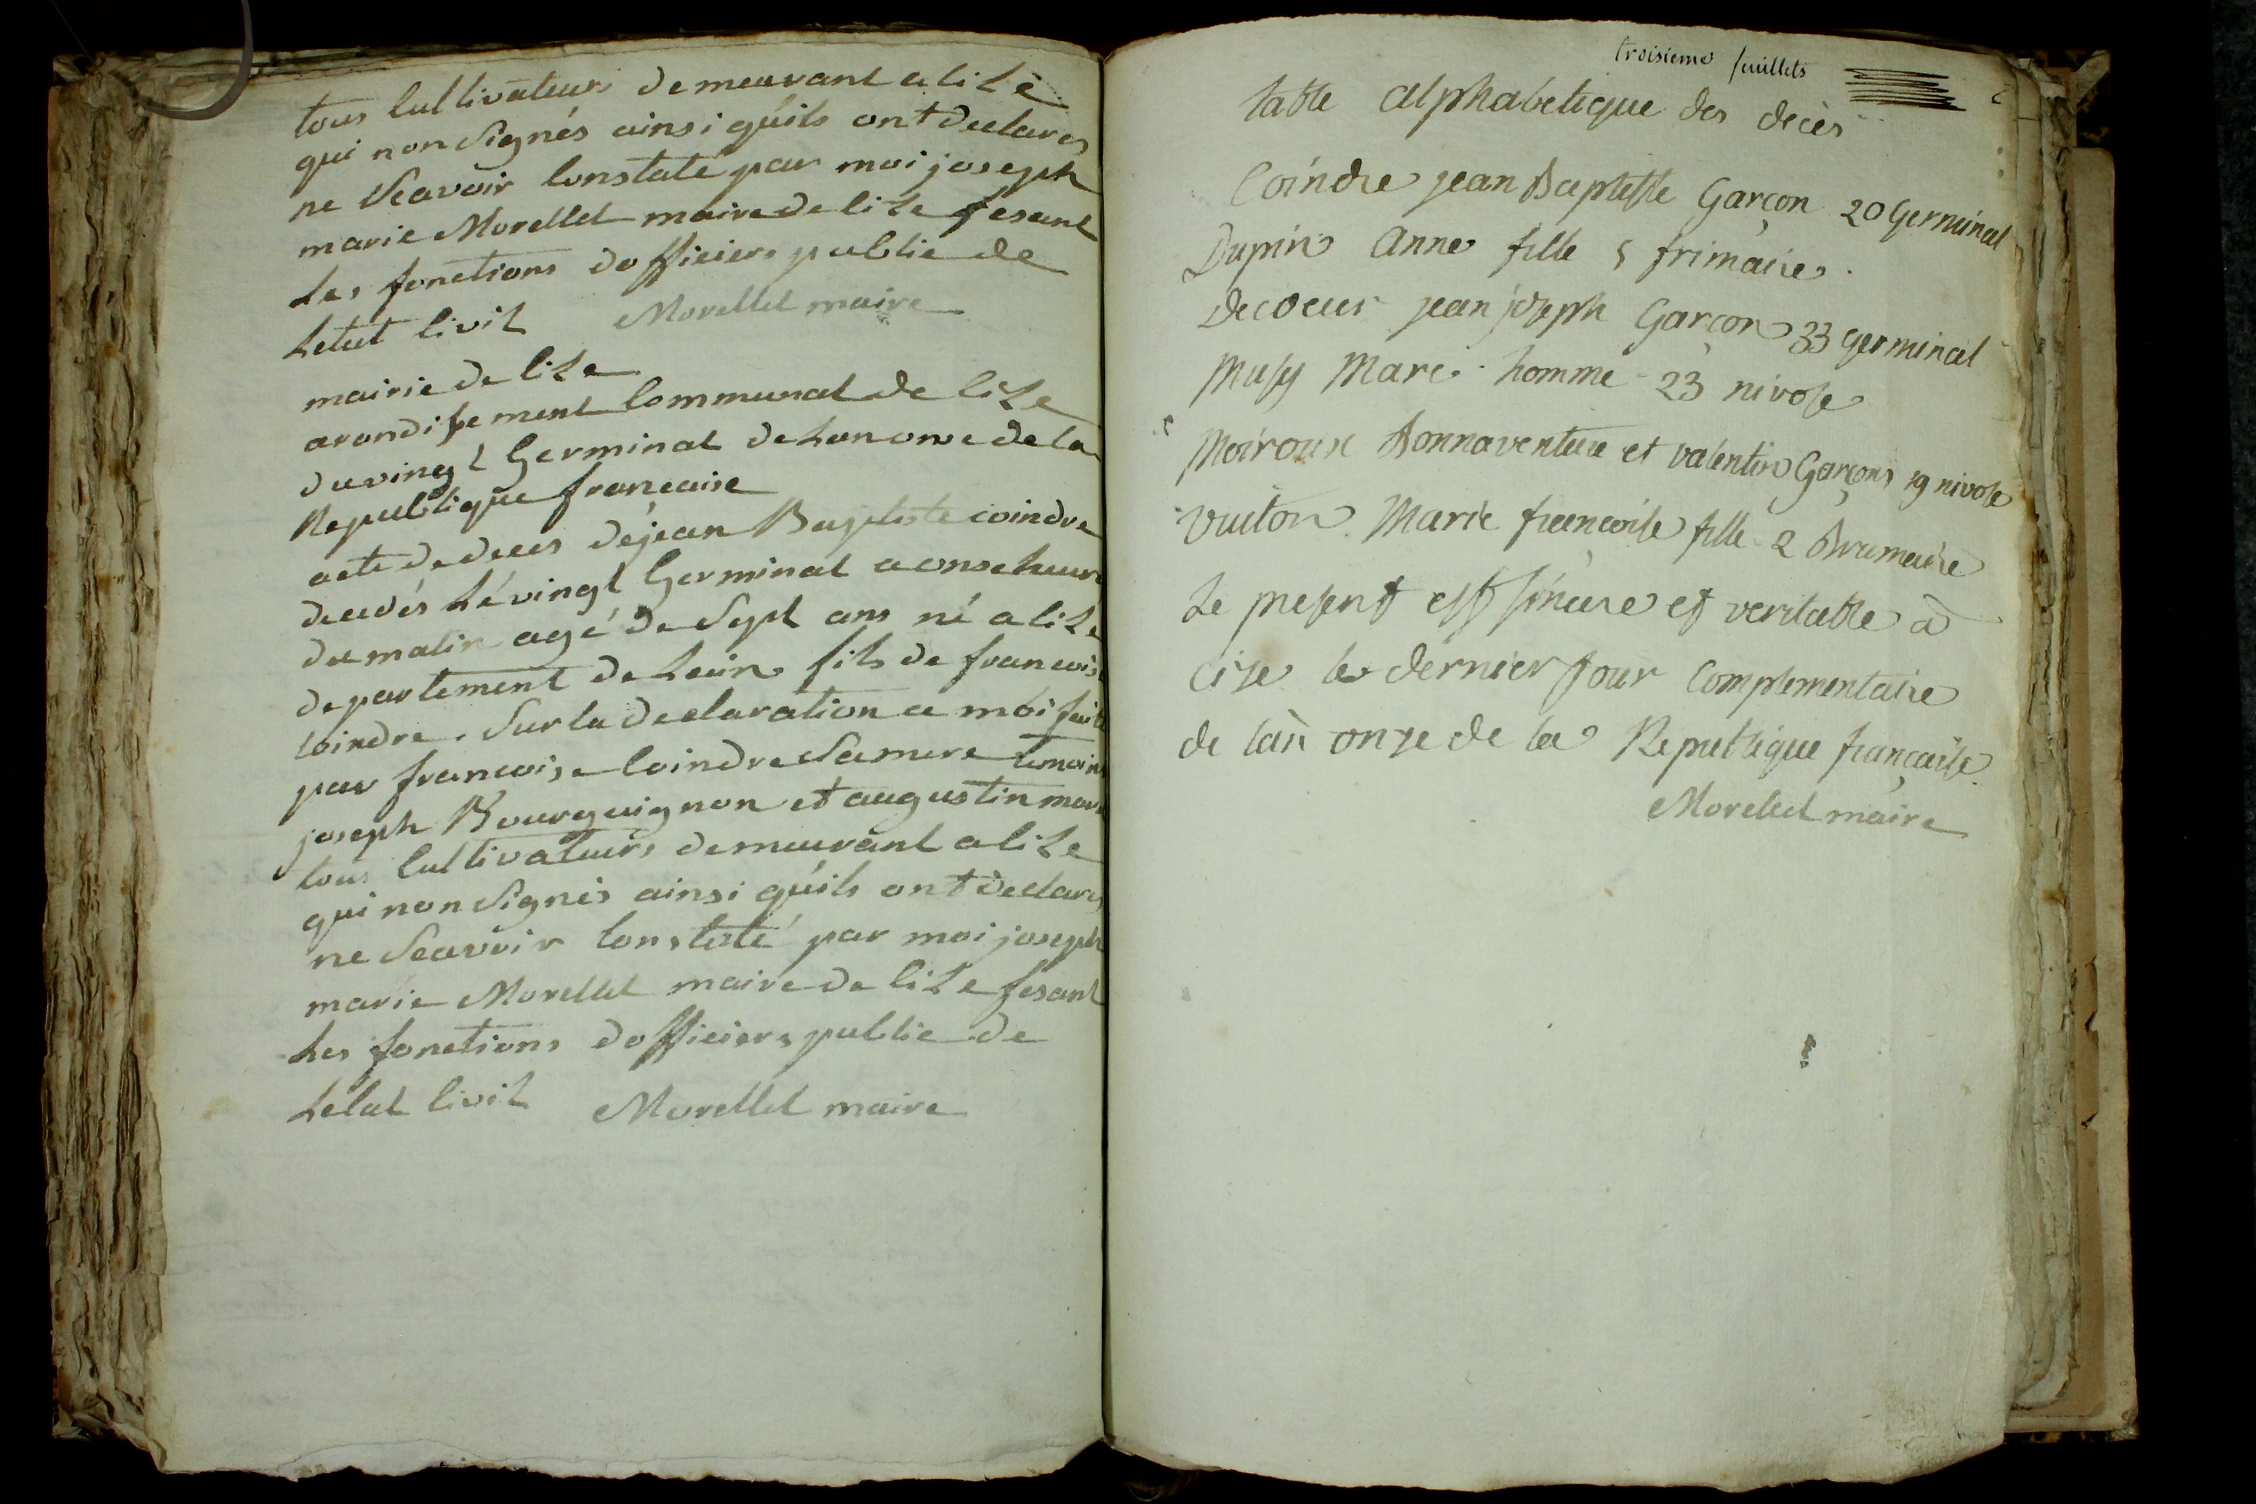 tous Cultivateurs demeurant a Cize
qui non Signés ainsi qúils ont declares
ne Scavoir Constaté par moi joseph
marie Morellet maire de Cize fesant
Les fonctions dofficiers publie de
Letat Civil Morellet maire
mairie de Cize
arondissement Communal de Cize
du vingt Germinal de Lan onze de la
Republique francaise
acte de deces de jean Baptiste coindre
decedés Lé vingt Germinal a onze heure
du matin agé de Sept ans né a Cize
departement de Lain fils de francoise
Coindre. Sur la declaration a moi faite
par francoise Coindre Sa mere temoins
joseph Bourguignon et augustin
tous Cultivateurs demeurant a Cize
qui non Signés ainsi qúils ont declares
ne Scavoir Constaté par moi joseph
marie Morellet maire de Cize fesant
Les fonctions dofficiers publie de
Letat Civil Morellet maire
troisieme feuillets
table alphabetique des decès
Coindre jean Baptiste Garçon 20 Germinal
Dupin Anne fille 5 frimaire.
Decoeur jean joseph Garçon 33 germinal
Musy Marc homme 23 nivose
Moiroux Bonnaventure et valentin Garçons 19 nivose
Vuiton Marie francoise fille 2 Brumaire
Le present est sincere et veritable à
cize le dernier jour Complementaire
de lan onze de la Republique française
Morellet maire